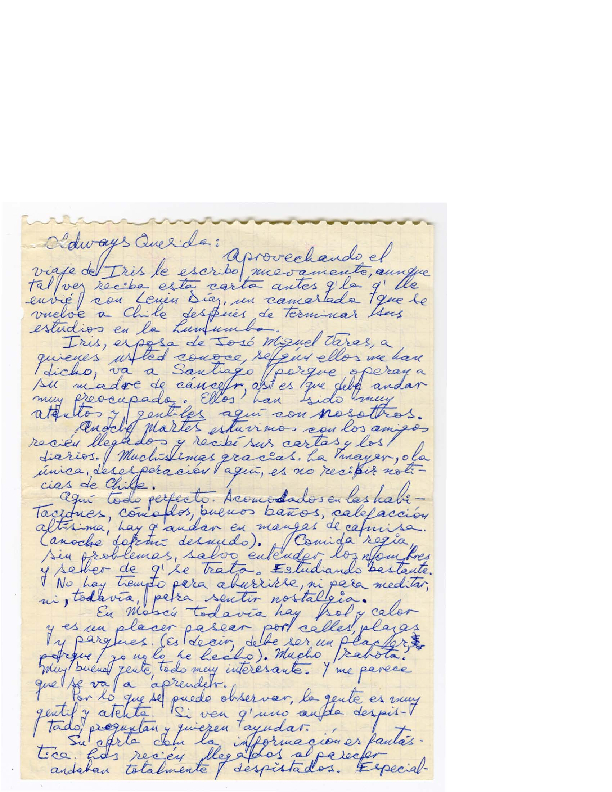 Always Querida:
Aprovechando el
viaje de Iris le escribo nuevamente, aunque
tal vez reciba esta carta antes q' la q' le
envié con Lenin Díaz, un camarada que se
vuelve a Chile después de terminar sus
estudios en la Lumumba.
Iris, esposa de José Miguel Varas, a
quienes usted conoce, según ellos me han
dicho, va a Santiago porque operan a
su madre de cáncer, así es que debe andar
muy preocupada. Ellos han sido muy
atentos y gentiles aquí con nosotros.
Anoche martes estuvimos con los amigos
recién llegados y recibí sus cartas y los
diarios. Muchísimas gracias. La mayor, o la
única, desesperación aquí, es no recibir noti-
cias de Chile.
Aquí todo perfecto. Acomodados en las habi-
taciones, cómodos, buenos baños, calefacción
altísima, hay q' andar en mangas de camisa.
(anoche dormí desnudo). Comida regia,
sin problemas, salvo entender los nombres
y saber de q' se trata. Estudiando bastante.
No hay tiempo para aburrirse, ni para meditar,
ni, todavía, para sentir nostalgia.
En Moscú todavía hay sol y calor
y es un placer pasear por calles, plazas
y parques. (es decir, debe ser un placer,
porque yo no lo he hecho). Mucho rabota.
Muy buena gente, todo muy interesante. Y me parece
que se va a aprender.
Por lo que se puede observar, la gente es muy
gentil y atenta. Si ven q' uno anda despis-
tado, preguntan y quieren ayudar.
Su carta con la información es fantás-
tica. Los recién llegados al parecer
andaban totalmente despistados. Especial-